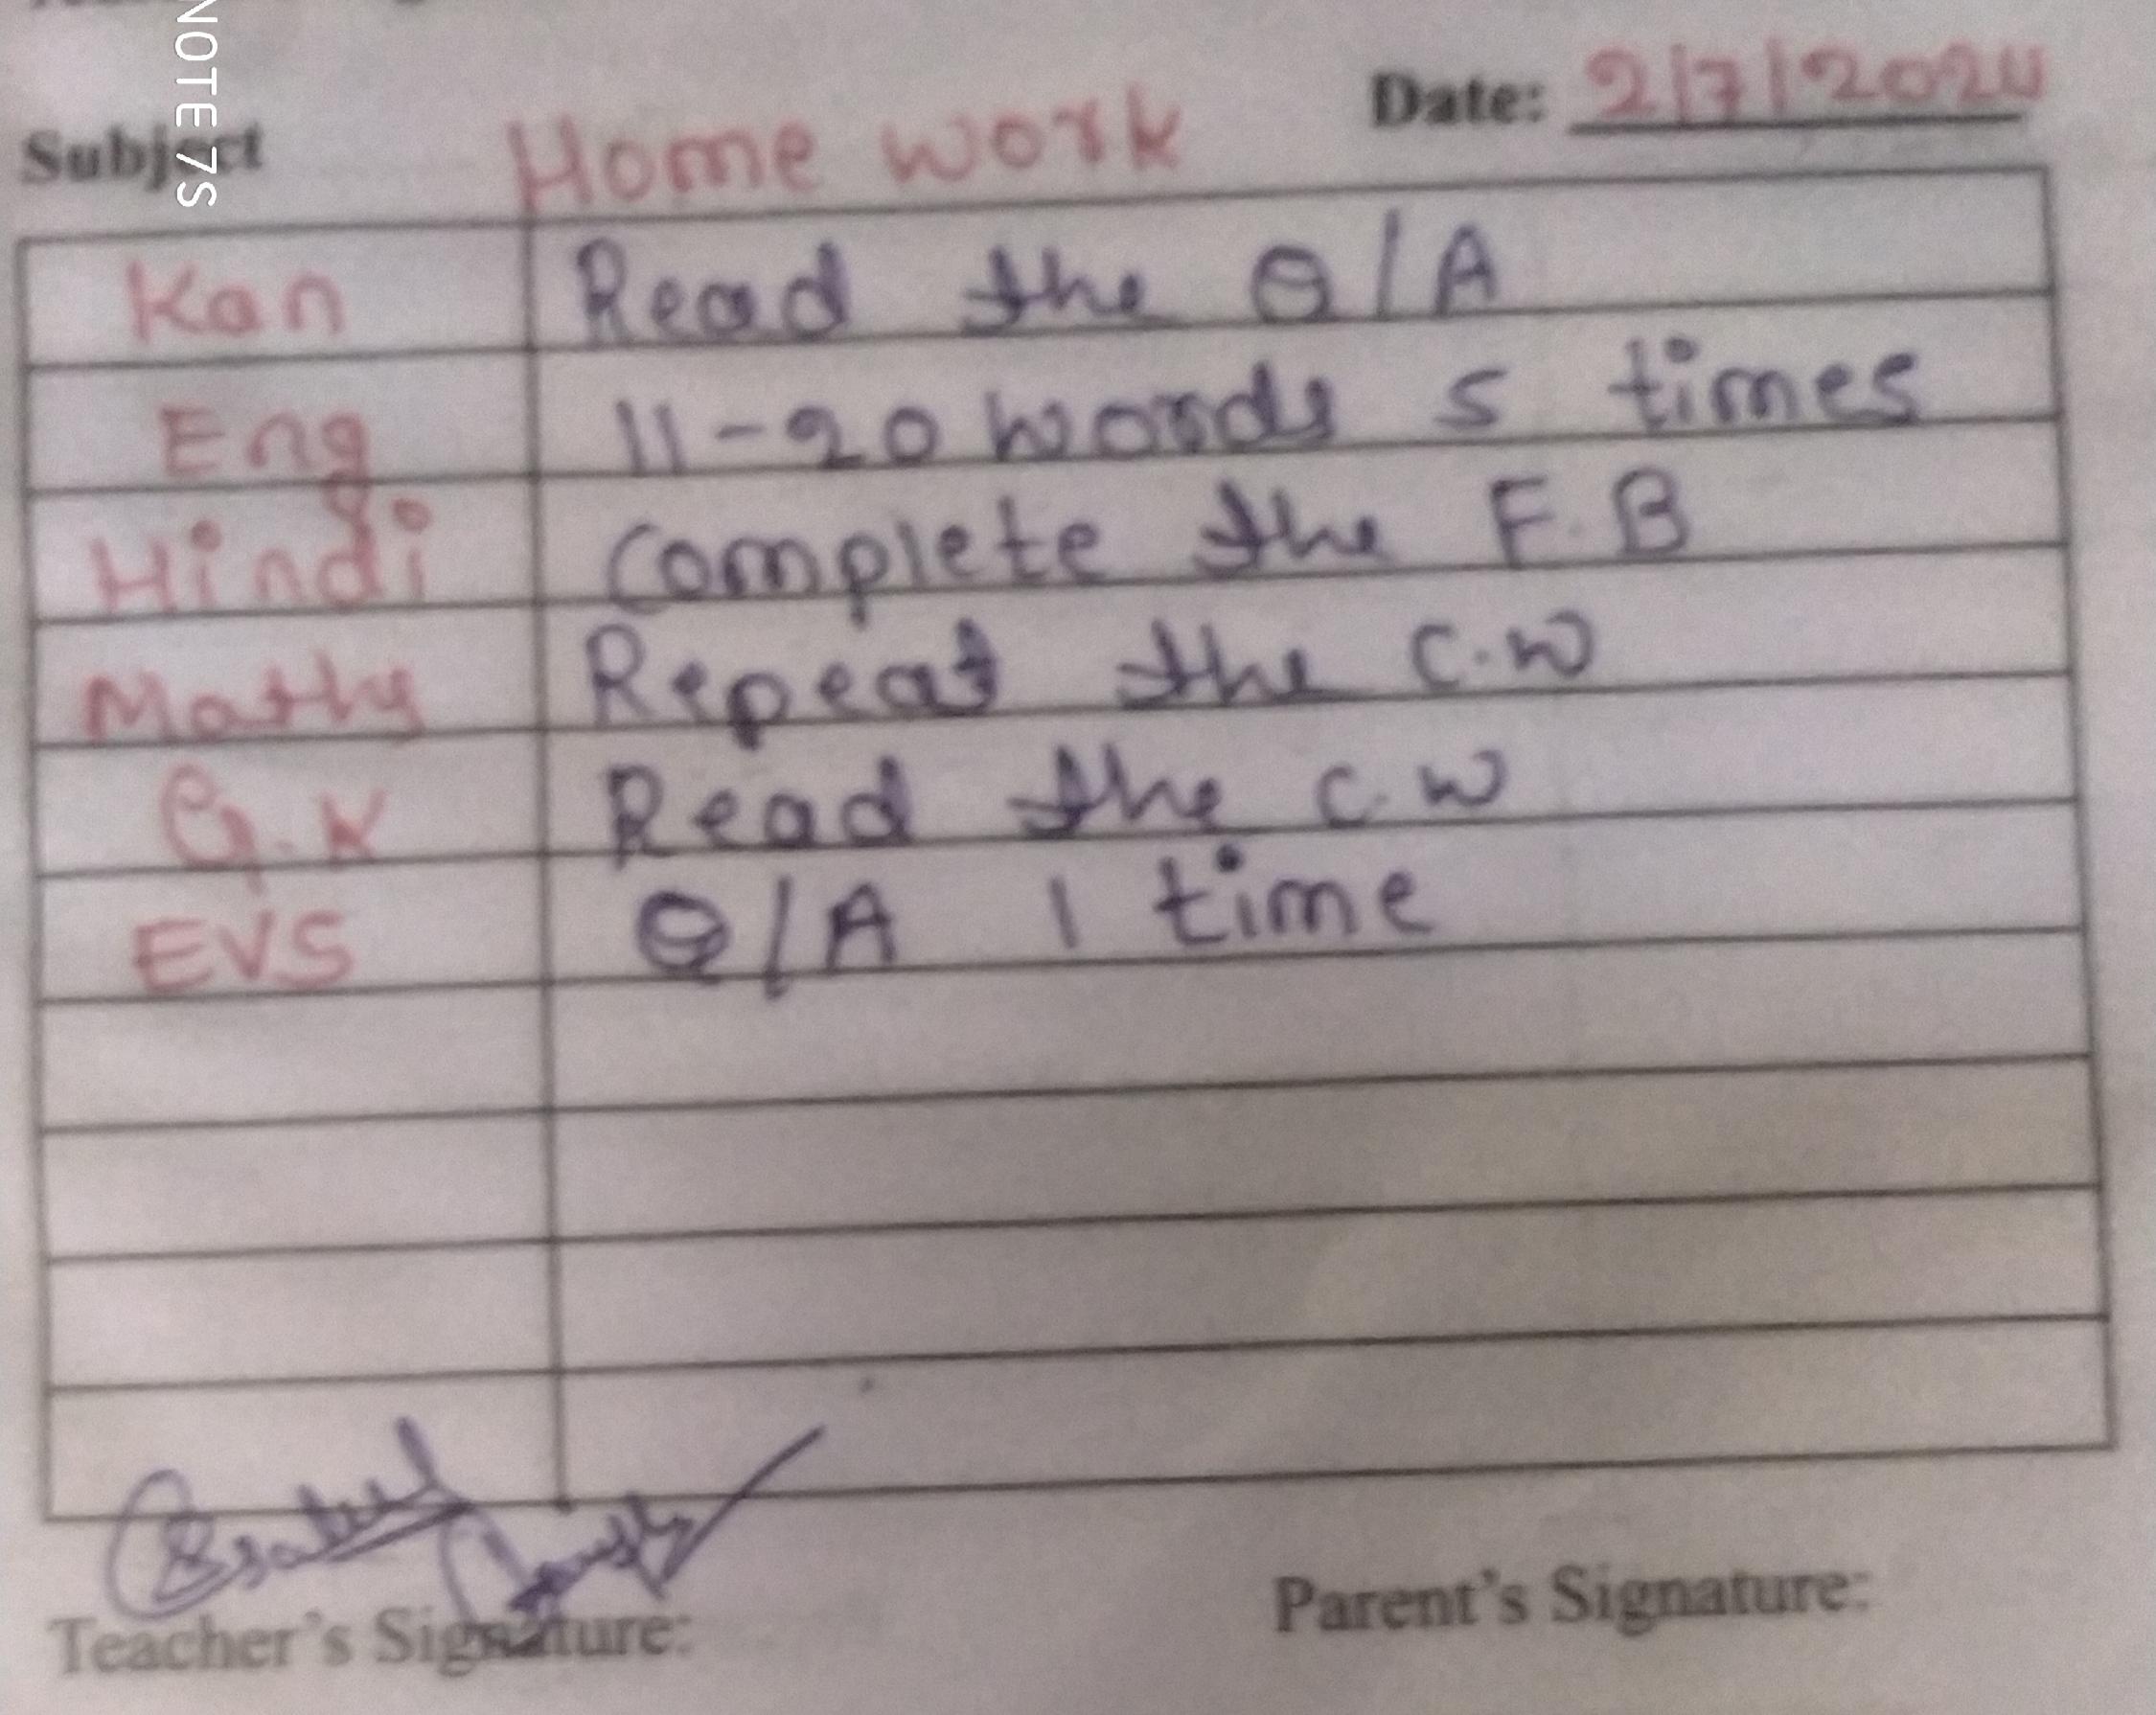 NOTE 7S
Date: 2/7/2024
Subject Home work
Kan Read the Q/A
Eng 11-20 words 5 times
Hindi Complete the F.B
Maths Repeat the C.W
G.K Read the C.W
EVS Q/A 1 time
Teacher's Signature: Parent's Signature: